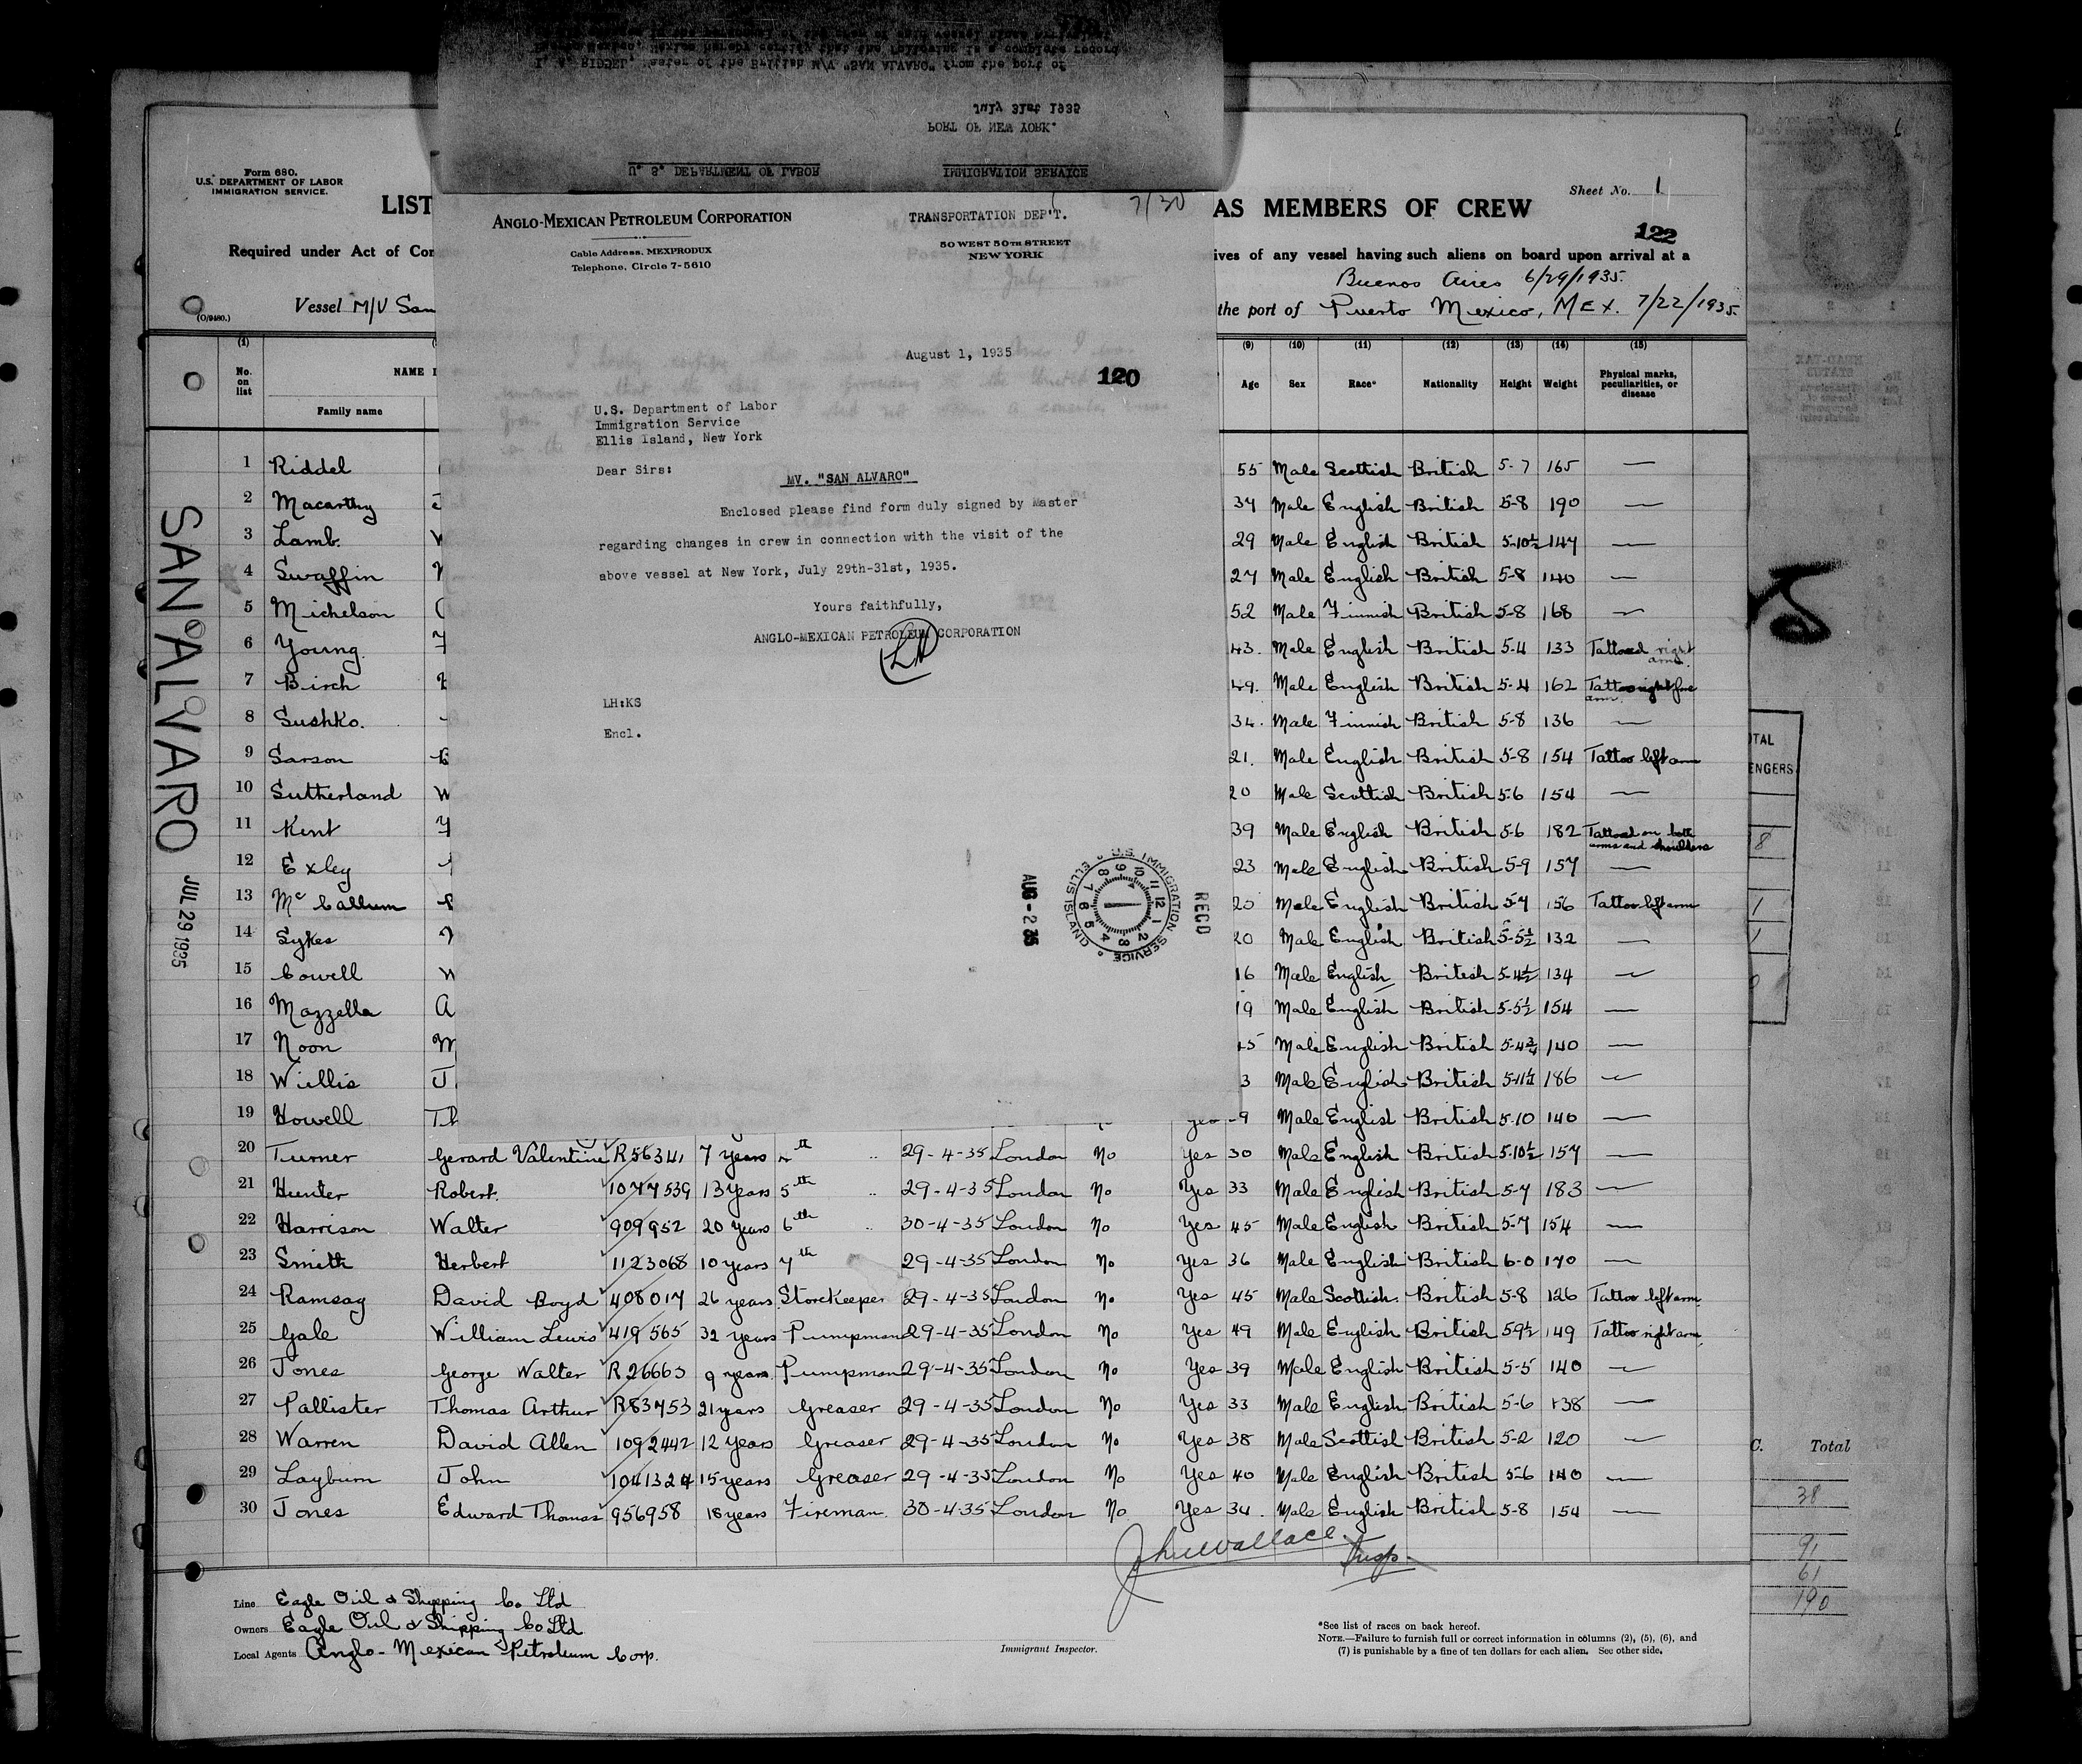 IMMIGRATION SERVICE
U. S. DEPARTMENT OF LABOR
PORT OF NEW YORK.
July 31st 1935
I, A. RIDDEL, Master of the British M/V "SAN ALVARO" from the port of
hereby certify that the following is a complete record
Form 680.
U.S. DEPARTMENT OF LABOR
IMMIGRATION SERVICE.
LIST
AS MEMBERS OF CREW
Sheet No. 1
122
Required under Act of Con
ives of any vessel having such aliens on board upon arrival at a
Buenos Aires 6/29/1935.
(O/9480.)
Vessel M/V San
the port of Puerto Mexico, MEX. 7/22/1935
7/30
ANGLO-MEXICAN PETROLEUM CORPORATION
TRANSPORTATION DEP'T.
Cable Address, MEXPRODUX
Telephone, Circle 7-5610
50 WEST 50TH STREET
NEW YORK
August 1, 1935
120
U.S. Department of Labor
Immigration Service
Ellis Island, New York
Dear Sirs:
MV. "SAN ALVARO"
Enclosed please find form duly signed by Master
regarding changes in crew in connection with the visit of the
above vessel at New York, July 29th-31st, 1935.
Yours faithfully,
ANGLO-MEXICAN PETROLEUM CORPORATION
LH
LH:KS
Encl.
AUG - 2 35
U.S. IMMIGRATION SERVICE
ELLIS ISLAND
RECD
SAN ALVARO
JUL 29 1935
(1) (9) (10) (11) (12) (13) (14) (15)
No. on list NAME I Family name Age Sex Race* Nationality Height Weight Physical marks, peculiarities, or disease
1 Riddel 55 Male Scottish British 5-7 165 —
2 Macarthy 34 Male English British 5-8 190 —
3 Lamb. W 29 Male English British 5-10½ 147 —
4 Swaffin 27 Male English British 5-8 140 —
5 Michelson 52 Male Finnish British 5-8 168 —
6 Young. 43. Male English British 5-4 133 Tattooed right arm.
7 Birch 49. Male English British 5-4 162 Tattoo right fore arm.
8 Sushko. 34. Male Finnish British 5-8 136 —
9 Sarson 21. Male English British 5-8 154 Tattoo left arm
10 Sutherland W 20 Male Scottish British 5-6 154 —
11 Kent 39 Male English British 5-6 182 Tattooed on both arms and shoulders
12 Exley 23 Male English British 5-9 157 —
13 McCallum Male English British 5-7 156 Tattoo left arm
14 Sykes 20 Male English British 5-5½ 132 —
15 Cowell W 16 Male English British 5-4½ 134 —
16 Mazzella A 19 Male English British 5-5½ 154 —
17 Noon M 5 Male English British 5-4¾ 140 —
18 Willis J 3 Male English British 5-11½ 186 —
19 Howell Th yes 9 Male English British 5-10 140 —
20 Turner Gerard Valentine R56341 7 years 4th " 29-4-35 London No Yes 30 Male English British 5-10½ 157 —
21 Hunter Robert. 1077539 13 years 5th " 29-4-35 London No Yes 33 Male English British 5-7 183 —
22 Harrison Walter 909952 20 years 6th " 30-4-35 London No Yes 45 Male English British 5-7 154 —
23 Smith Herbert 1123068 10 years 7th 29-4-35 London No Yes 36 Male English British 6-0 170 —
24 Ramsay David Boyd 408017 26 years Storekeeper 29-4-35 London No Yes 45 Male Scottish. British 5-8 126 Tattoo left arm.
25 Gale William Lewis 419565 32 years Pumpman 29-4-35 London No Yes 49 Male English British 5-9½ 149 Tattoo right arm
26 Jones George Walter R26663 9 years Pumpman 29-4-35 London No Yes 39 Male English British 5-5 140 —
27 Pallister Thomas Arthur R83753 21 years Greaser 29-4-35 London No Yes 33 Male English British 5-6 138 —
28 Warren David Allen 1092442 12 years Greaser 29-4-35 London No Yes 38 Male Scottish British 5-2 120 —
29 Layburn John 1041324 15 years Greaser 29-4-35 London No Yes 40 Male English British 5-6 140 —
30 Jones Edward Thomas 956958 18 years Fireman. 30-4-35 London No Yes 34. Male English British 5-8 154 —
Jno Wallace
Insp.
Line Eagle Oil & Shipping Co Ltd
Owners Eagle Oil & Shipping Co Ltd
Local Agents Anglo-Mexican Petroleum Corp.
Immigrant Inspector.
*See list of races on back hereof.
NOTE.—Failure to furnish full or correct information in columns (2), (5), (6), and
(7) is punishable by a fine of ten dollars for each alien. See other side.
TAL
ENGERS
8
1
1
C. Total
38
91
61
190